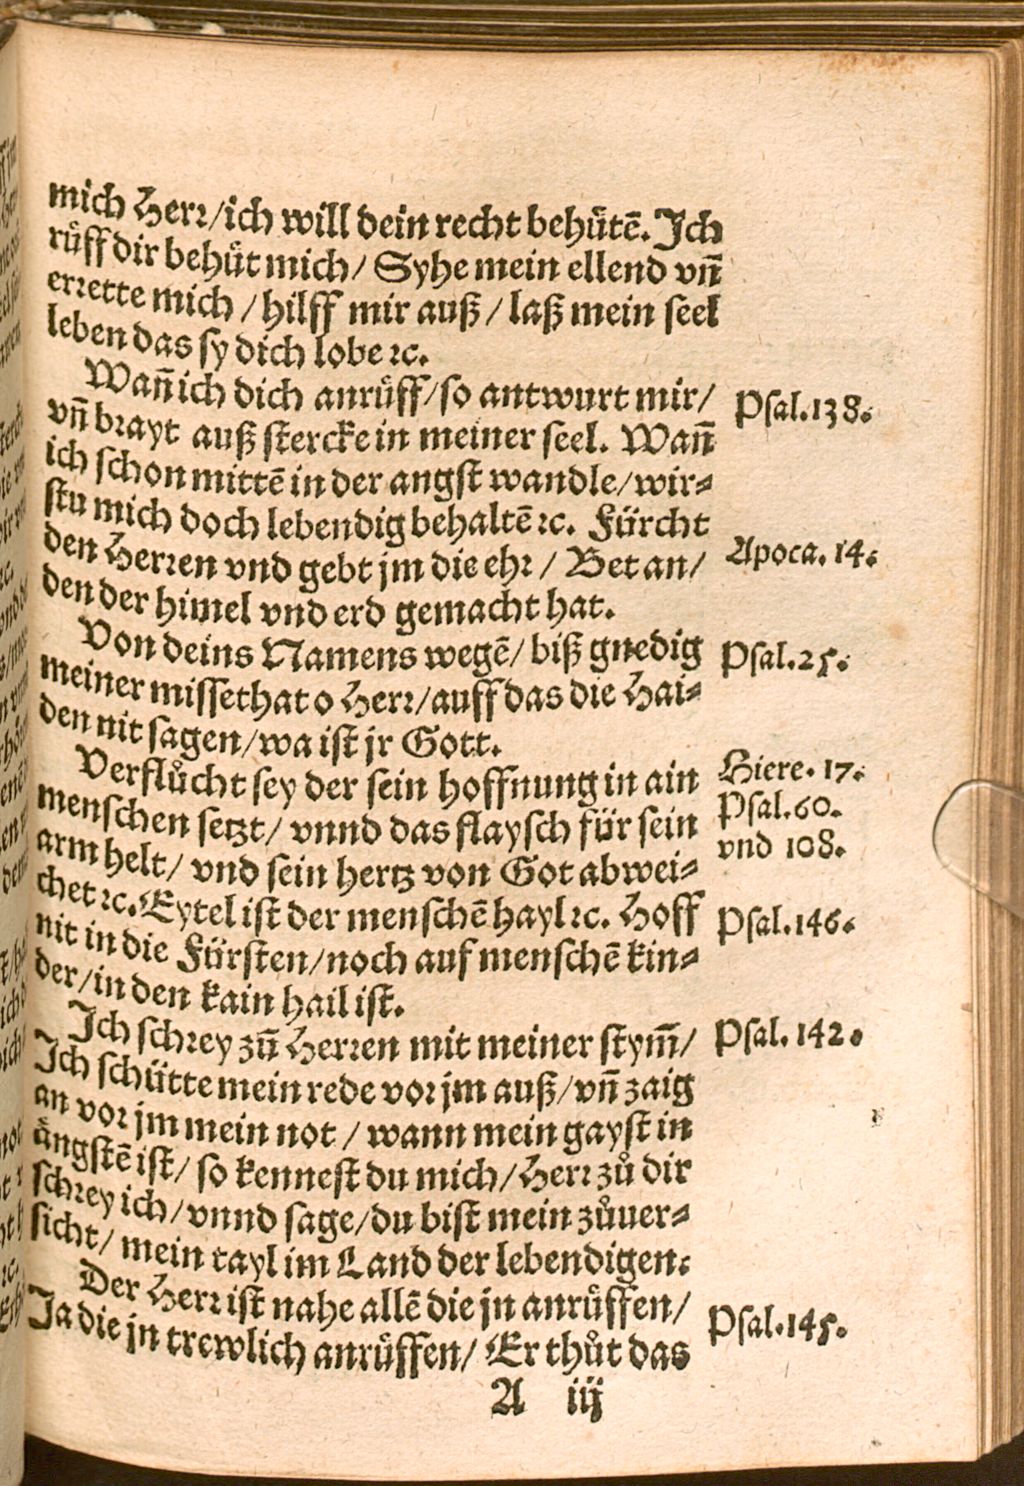 mich Herr/ich will dein recht behütē. Ich
rüff dir behüt mich/ Syhe mein ellend vñ
errette mich / hilff mir auß / laß mein seel
leben das sy dich lobe ꝛc.
Wañ ich dich anrüff/so antwurt mir/
Psal.138.
vñ brayt auß stercke in meiner seel. Wañ
ich schon mittē in der angst wandle/wir⸗
stu mich doch lebendig behaltē ꝛc. Fürcht
den Herren vnd gebt jm die ehr / Bet an/
Apoca. 14.
den der himel vnd erd gemacht hat.
Von deins Namens wegē/ biß gnedig
Psal.25.
meiner missethat o Herr/auff das die Hai⸗
den nit sagen/wa ist jr Gott.
Verflůcht sey der sein hoffnung in ain
Hiere. 17.
menschen setzt/ vnnd das flaysch für sein
Psal.60.
arm helt/ vnd sein hertz von Got abwei⸗
vnd 108.
chet ꝛc. Eytel ist der menschē hayl ꝛc. Hoff
Psal.146.
nit in die Fürsten/noch auf menschē kin⸗
der/in den kain hail ist.
Ich schrey zū Herren mit meiner stym̄/
Psal. 142.
Ich schütte mein rede vor jm auß/vñ zaig
an vor jm mein not / wann mein gayst in
ängstē ist/ so kennest du mich/Herr zů dir
schrey ich/vnnd sage/du bist mein zůuer⸗
sicht/ mein tayl im Land der lebendigen.
Der Herr ist nahe allē die jn anrüffen/
Psal.145.
Ja die jn trewlich anrüffen/ Er thůt das
A iij